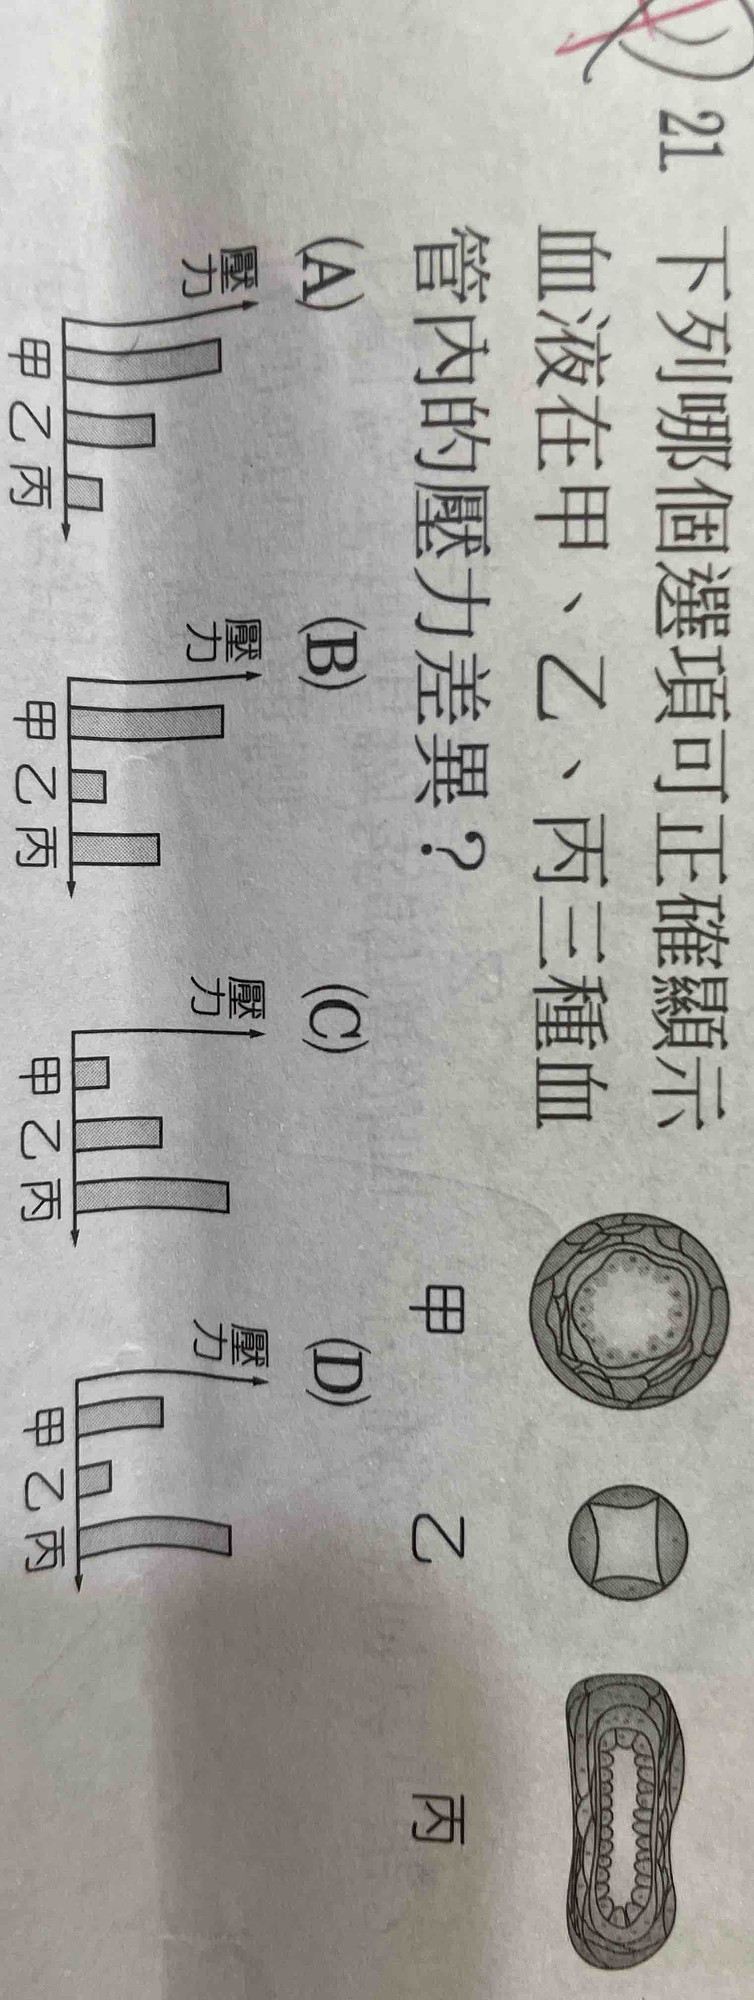 21 下列哪個選項可正確顯示
血液在甲、乙、丙三種血
管內的壓力差異？
甲 乙 丙
(A) (B) (C) (D)
壓力 壓力 壓力 壓力
甲乙丙 甲乙丙 甲乙丙 甲乙丙